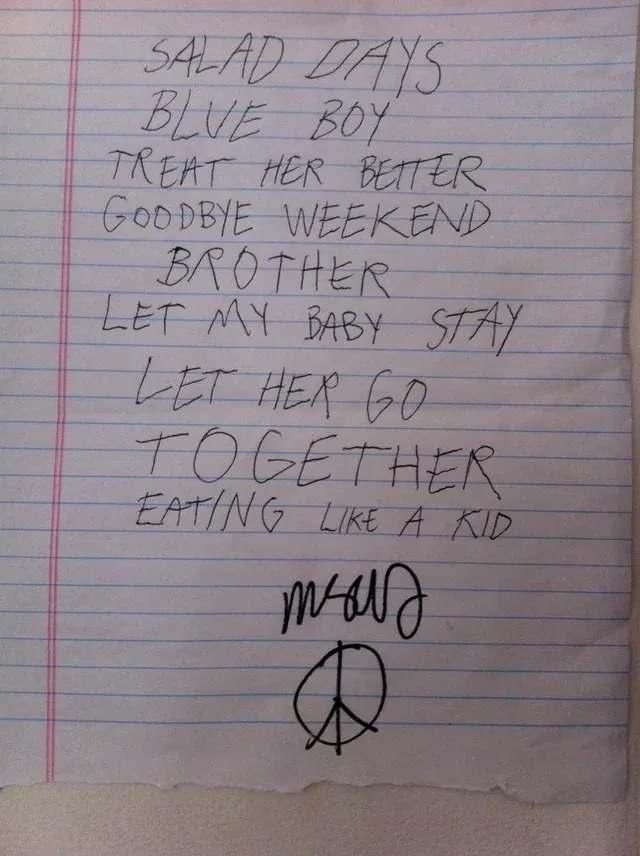 SALAD DAYS
BLUE BOY
TREAT HER BETTER
GOODBYE WEEKEND
BROTHER
LET MY BABY STAY
LET HER GO
TOGETHER
EATING LIKE A KID